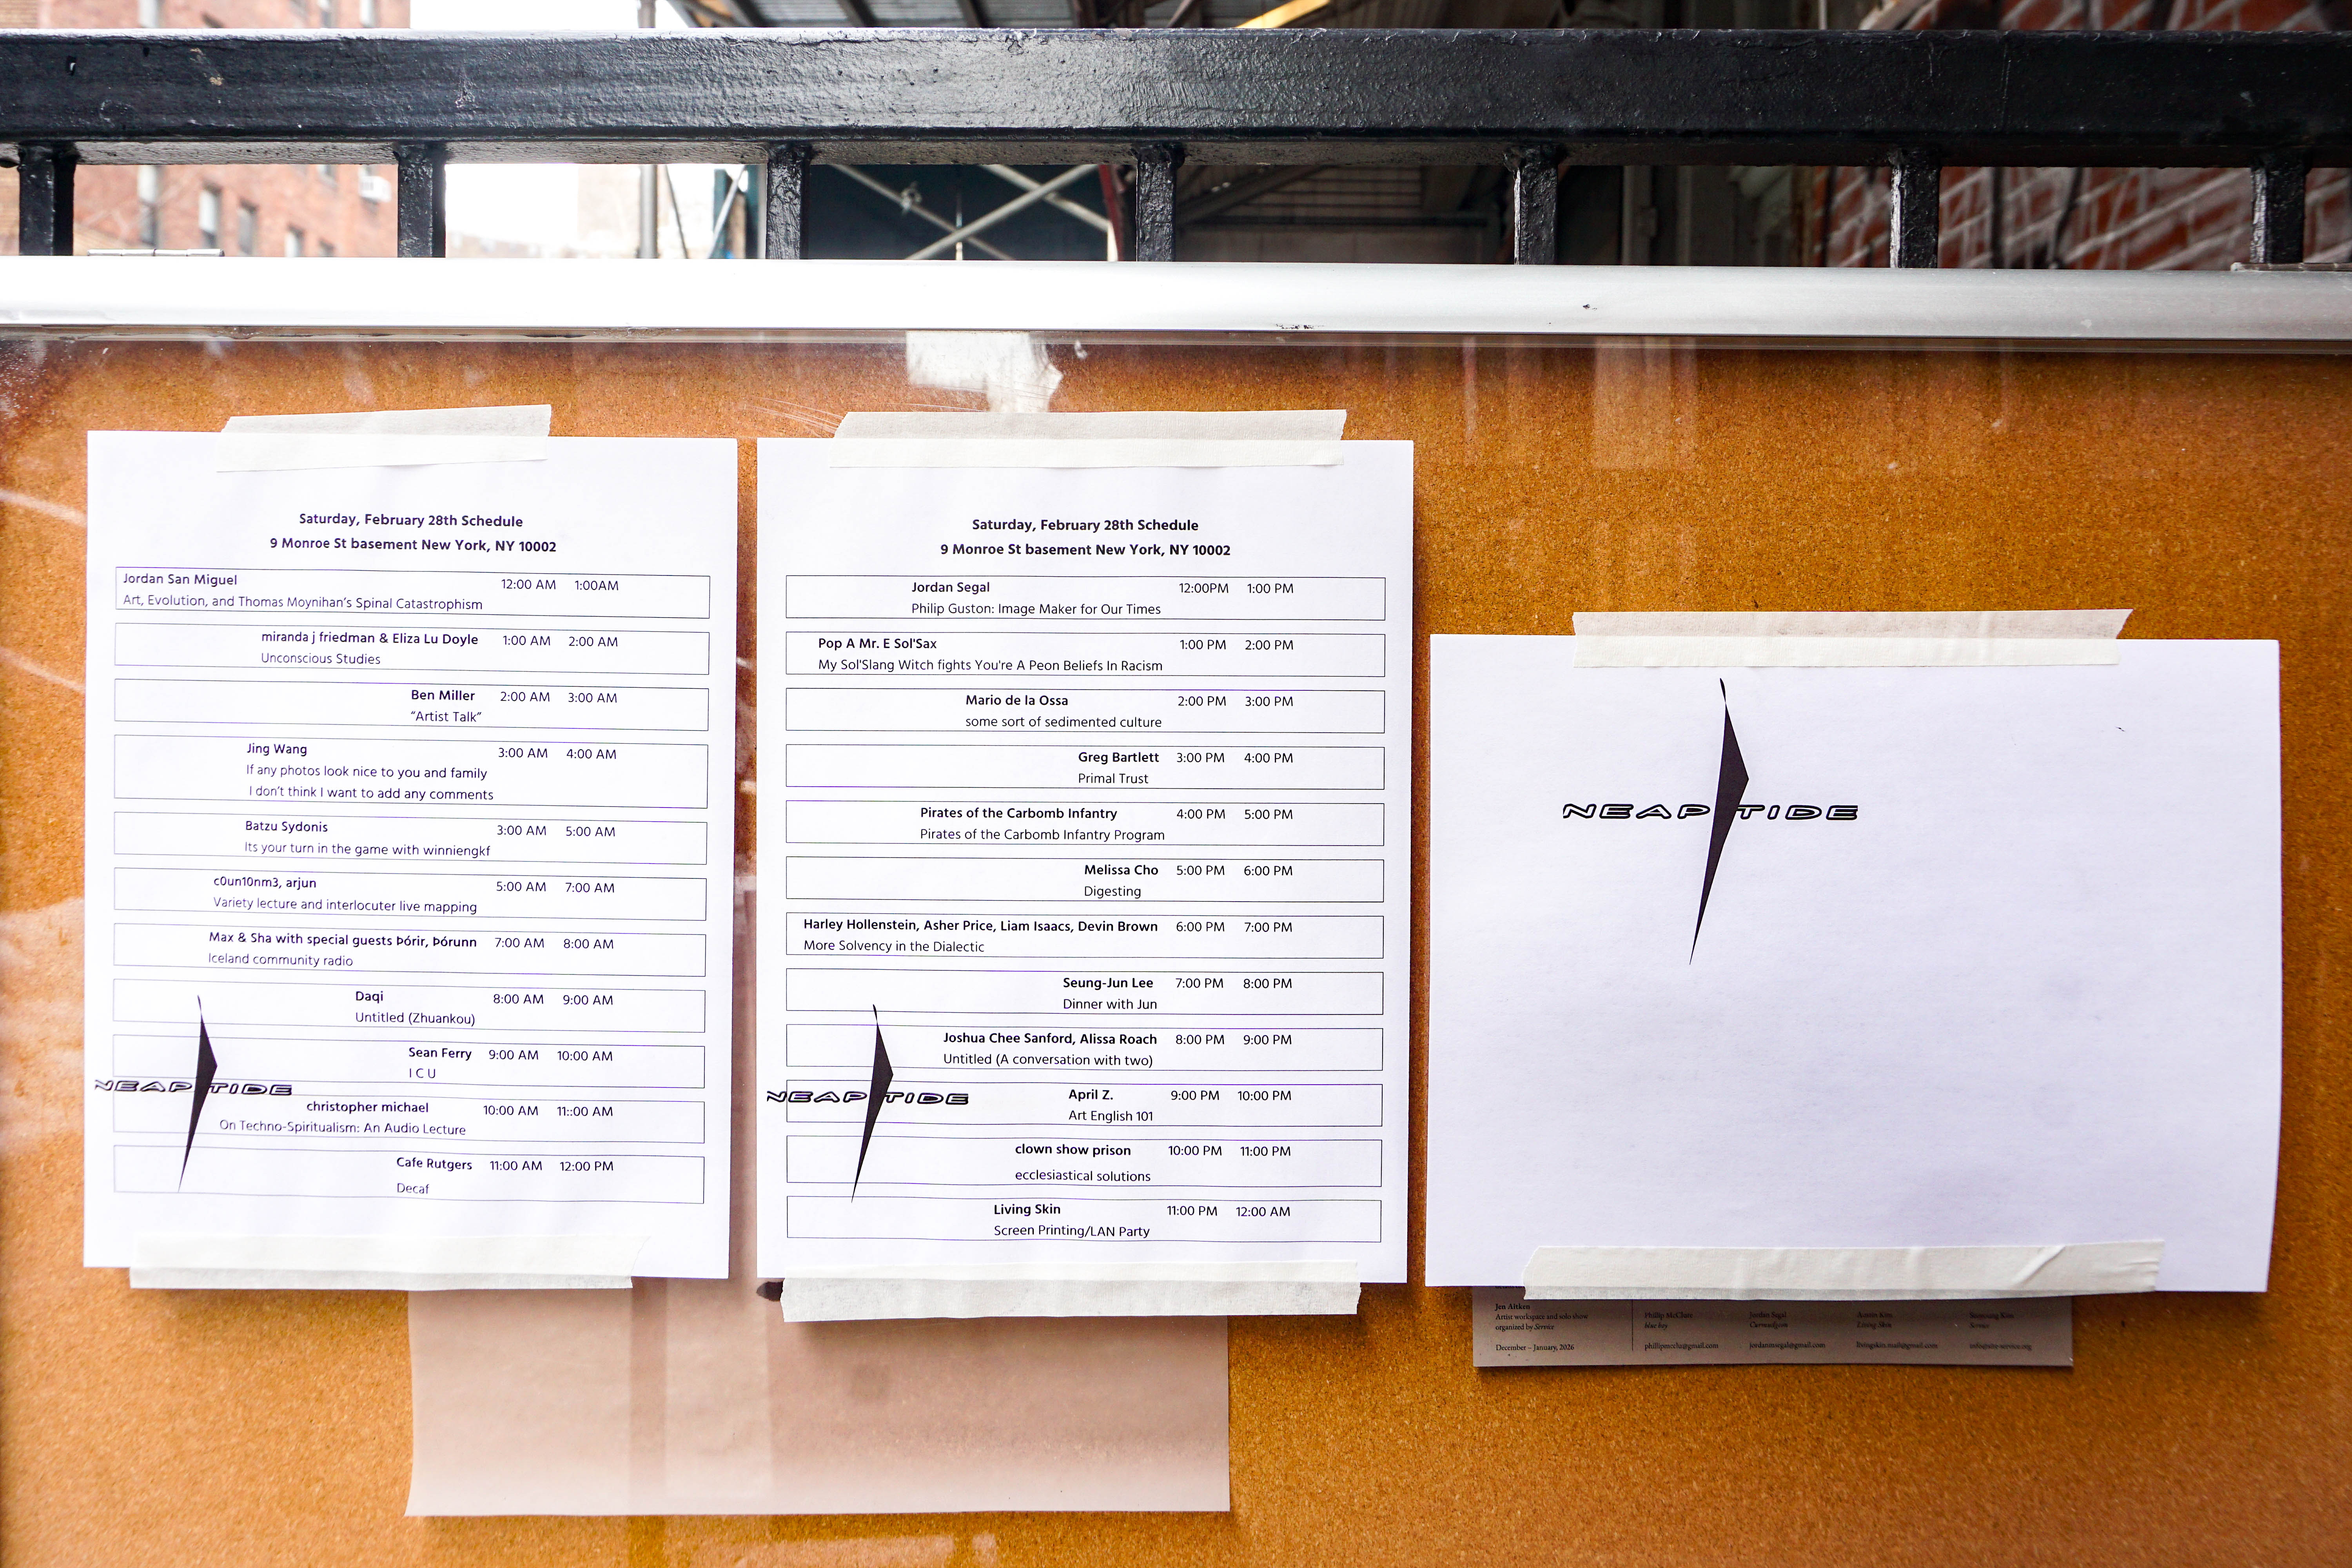 Saturday, February 28th Schedule
9 Monroe St basement New York, NY 10002
Jordan San Miguel 12:00 AM 1:00AM
Art, Evolution, and Thomas Moynihan's Spinal Catastrophism
miranda j friedman & Eliza Lu Doyle 1:00 AM 2:00 AM
Unconscious Studies
Ben Miller 2:00 AM 3:00 AM
“Artist Talk”
Jing Wang 3:00 AM 4:00 AM
If any photos look nice to you and family
I don't think I want to add any comments
Batzu Sydonis 3:00 AM 5:00 AM
Its your turn in the game with winniengkf
c0un10nm3, arjun 5:00 AM 7:00 AM
Variety lecture and interlocuter live mapping
Max & Sha with special guests Þórir, Þórunn 7:00 AM 8:00 AM
Iceland community radio
Daqi 8:00 AM 9:00 AM
Untitled (Zhuankou)
Sean Ferry 9:00 AM 10:00 AM
I C U
NEAP TIDE
christopher michael 10:00 AM 11::00 AM
On Techno-Spiritualism: An Audio Lecture
Cafe Rutgers 11:00 AM 12:00 PM
Decaf
Saturday, February 28th Schedule
9 Monroe St basement New York, NY 10002
Jordan Segal 12:00PM 1:00 PM
Philip Guston: Image Maker for Our Times
Pop A Mr. E Sol'Sax 1:00 PM 2:00 PM
My Sol'Slang Witch fights You're A Peon Beliefs In Racism
Mario de la Ossa 2:00 PM 3:00 PM
some sort of sedimented culture
Greg Bartlett 3:00 PM 4:00 PM
Primal Trust
Pirates of the Carbomb Infantry 4:00 PM 5:00 PM
Pirates of the Carbomb Infantry Program
Melissa Cho 5:00 PM 6:00 PM
Digesting
Harley Hollenstein, Asher Price, Liam Isaacs, Devin Brown 6:00 PM 7:00 PM
More Solvency in the Dialectic
Seung-Jun Lee 7:00 PM 8:00 PM
Dinner with Jun
Joshua Chee Sanford, Alissa Roach 8:00 PM 9:00 PM
Untitled (A conversation with two)
April Z. 9:00 PM 10:00 PM
NEAP TIDE
Art English 101
clown show prison 10:00 PM 11:00 PM
ecclesiastical solutions
Living Skin 11:00 PM 12:00 AM
Screen Printing/LAN Party
NEAP TIDE
Jen Aitken
Artist workspace and solo show
organized by Service
December – January, 2026
Phillip McClure
blue boy
Jordan Segal
Living Skin
Service
jordanmsegal@gmail.com
livingskin.mail@gmail.com
info@site-service.org